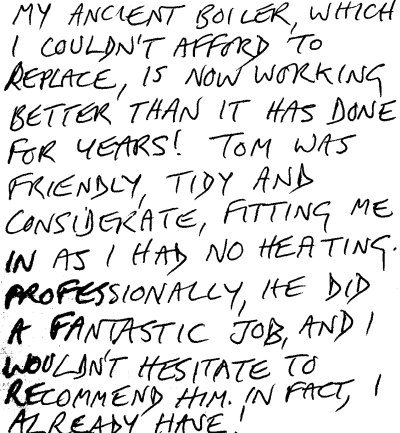 MY ANCIENT BOILER, WHICH
I COULDN'T AFFORD TO
REPLACE, IS NOW WORKING
BETTER THAN IT HAS DONE
FOR YEARS! TOM WAS
FRIENDLY, TIDY AND
CONSIDERATE, FITTING ME
IN AS I HAD NO HEATING.
PROFESSIONALLY, HE DID
A FANTASTIC JOB, AND I
WOULDN'T HESITATE TO
RECOMMEND HIM. IN FACT, I
ALREADY HAVE!